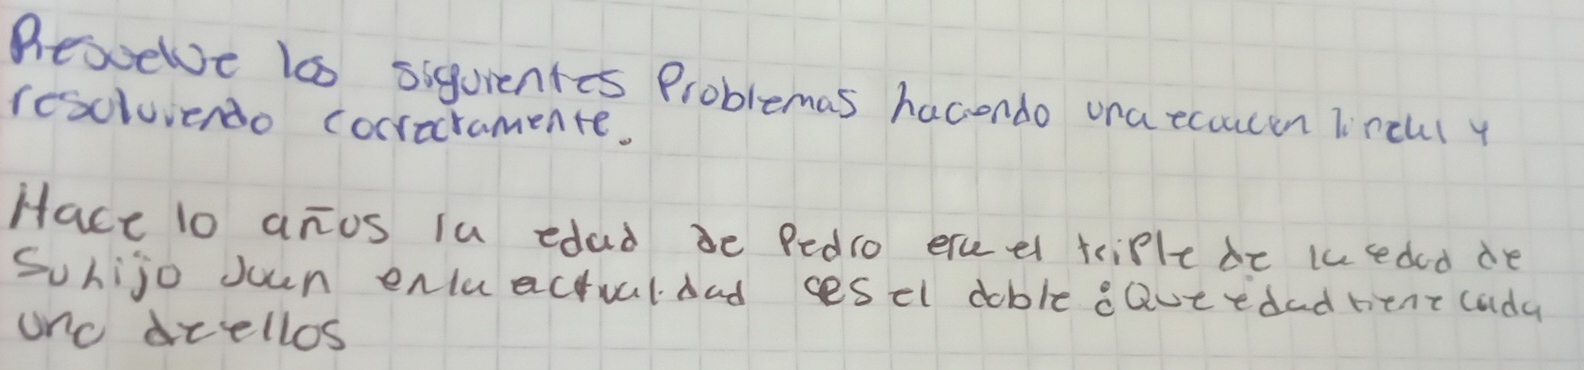 Resuelve los siguientes Problemas haciendo una ecuacion lineal y
resolviendo correctamente.
Hace 10 años la edad de Pedro era el triple de la edad de
Su hijo Juan en la actualidad es el doble ¿Que edad tiene cada
uno de ellos